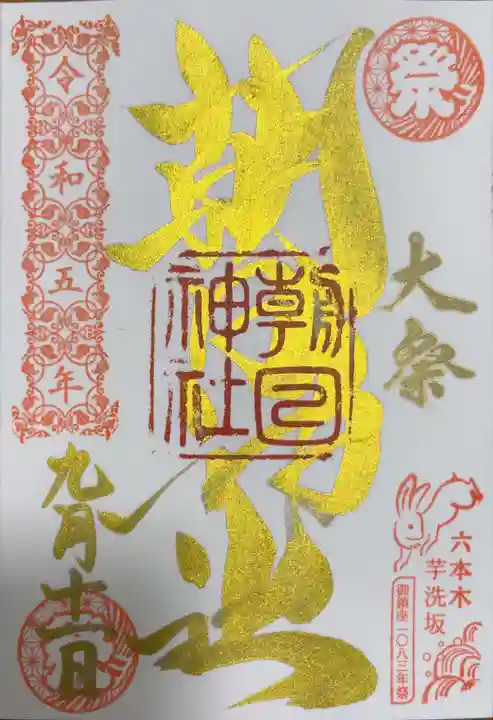 祭
大祭
朝日神社
朝日
神社
令和五年
九月十一日
六本木
芋洗坂
御鎮座一〇八三年祭